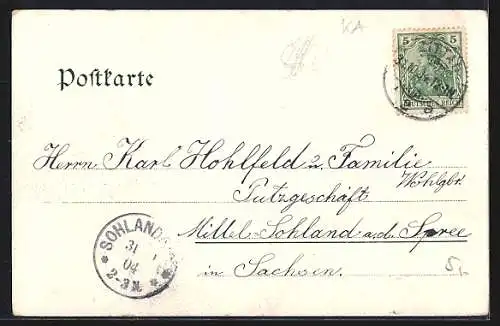 KA
5 5
ZITTAU
DEUTSCHES REICH
Postkarte
Herrn Karl Hohlfeld u. Familie
Wohlgbr.
Putzgeschäft
Mittel-Sohland a.d. Spree
in Sachsen.
SOHLAND
31
04
2-3 N.